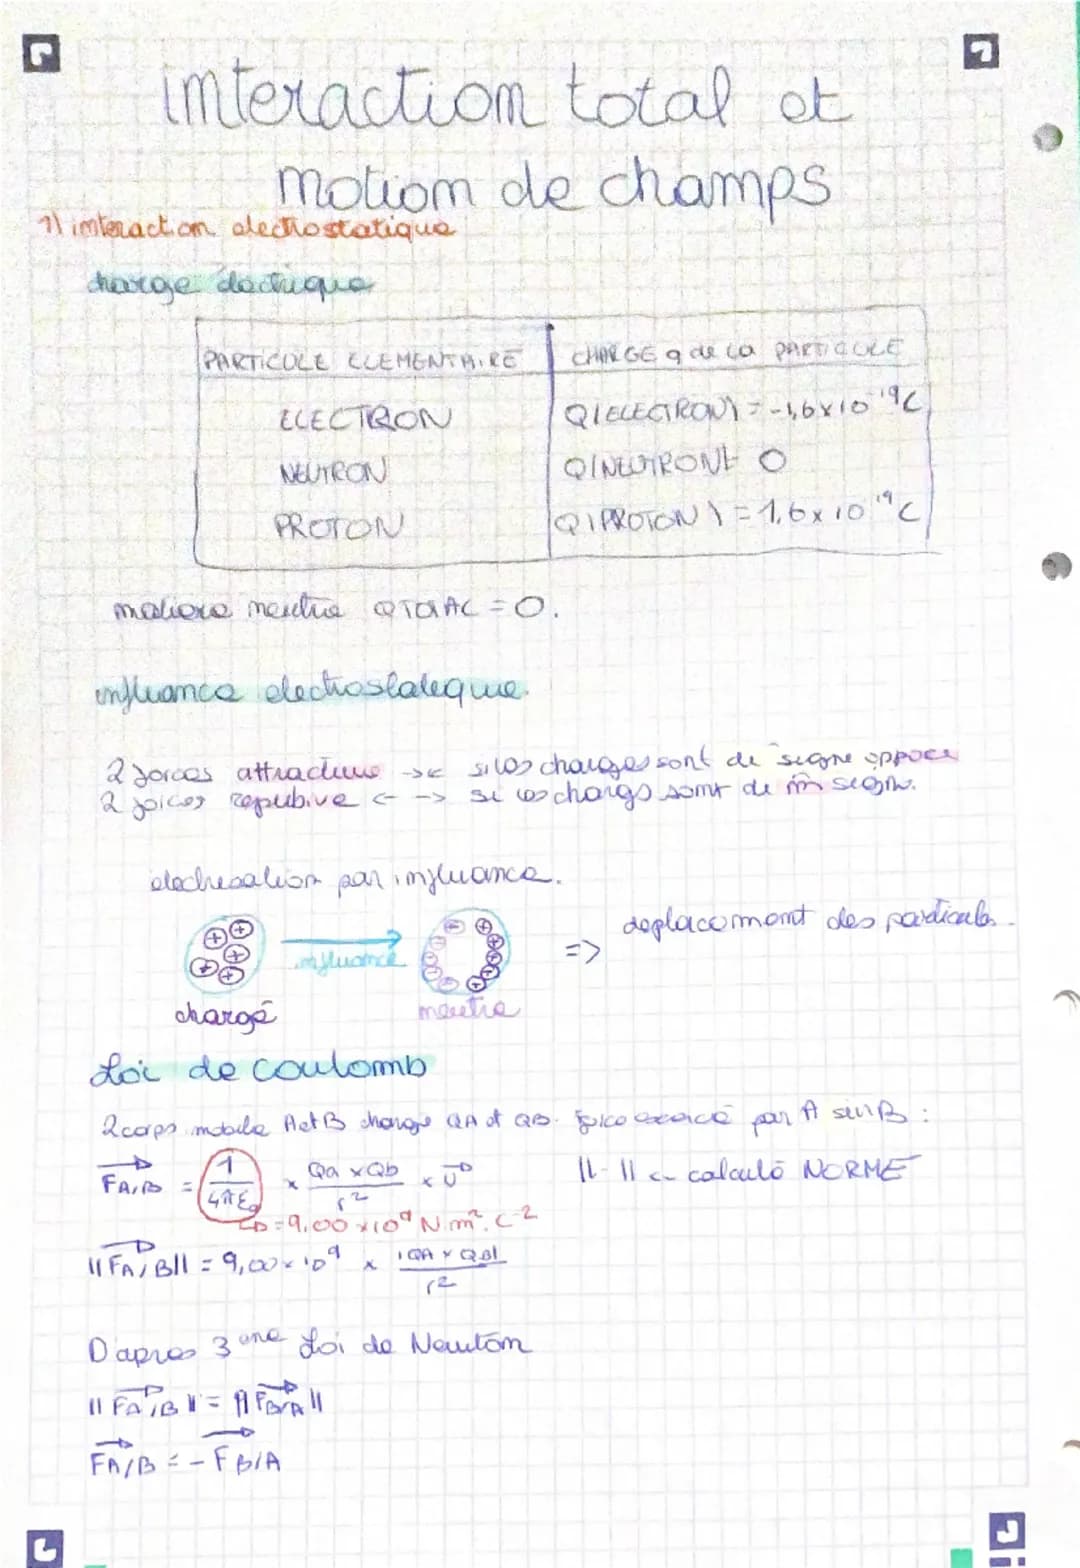 interaction total et
notion de champs
1) interaction electrostatique
charge électrique
PARTICULE ELEMENTAIRE CHARGE q de la PARTICULE
ELECTRON Q(ELECTRON) = -1,6x10⁻¹⁹C
NEUTRON Q(NEUTRON)= 0
PROTON Q(PROTON) = 1,6x10⁻¹⁹C
matiere neutre QTOTAL = 0.
influence electrostatique.
2 forces attractive -> <- si les charges sont de signe opposé
2 forces repulsive <- -> si les charges sont de m̂ signe.
electrisation par influence.
influence => deplacement des particules.
chargé neutre
Loi de coulomb
2 corps mobile A et B charge QA et QB. Force exercé par A sur B :
FA/B = 1/4πε₀ x Qa x Qb / r² x U ||-|| <- calculé NORME
-> = 9,00 x10⁹ N.m².C⁻²
||FA/B|| = 9,00x10⁹ x |QA x QB| / r²
D'apres 3ème Loi de Newton
||FA/B|| = ||FB/A||
FA/B = - FB/A